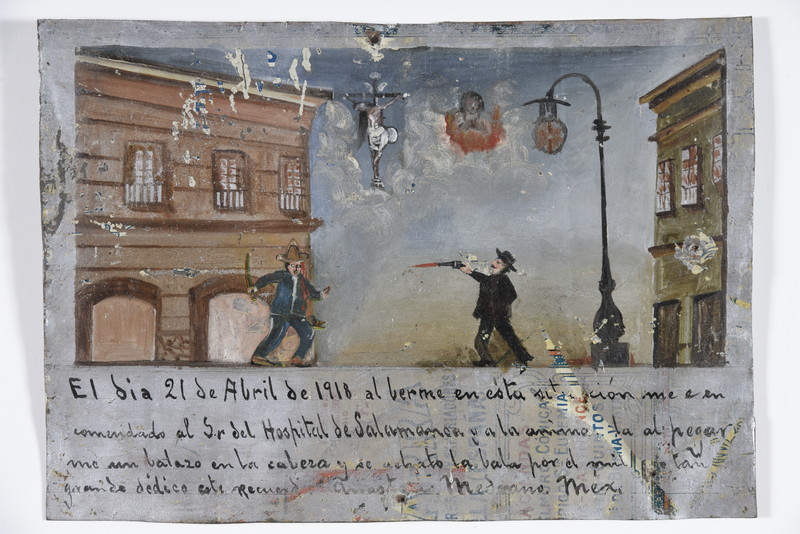 El dia 21 de Abril de 1918 al berme en ésta situación me e en
comendado al Sr del Hospital de Salamansa y a la anima al pegar
me un balazo en la cabeza y se la bala por el tan
grande dédico este recuerdo Medrano. Mex.